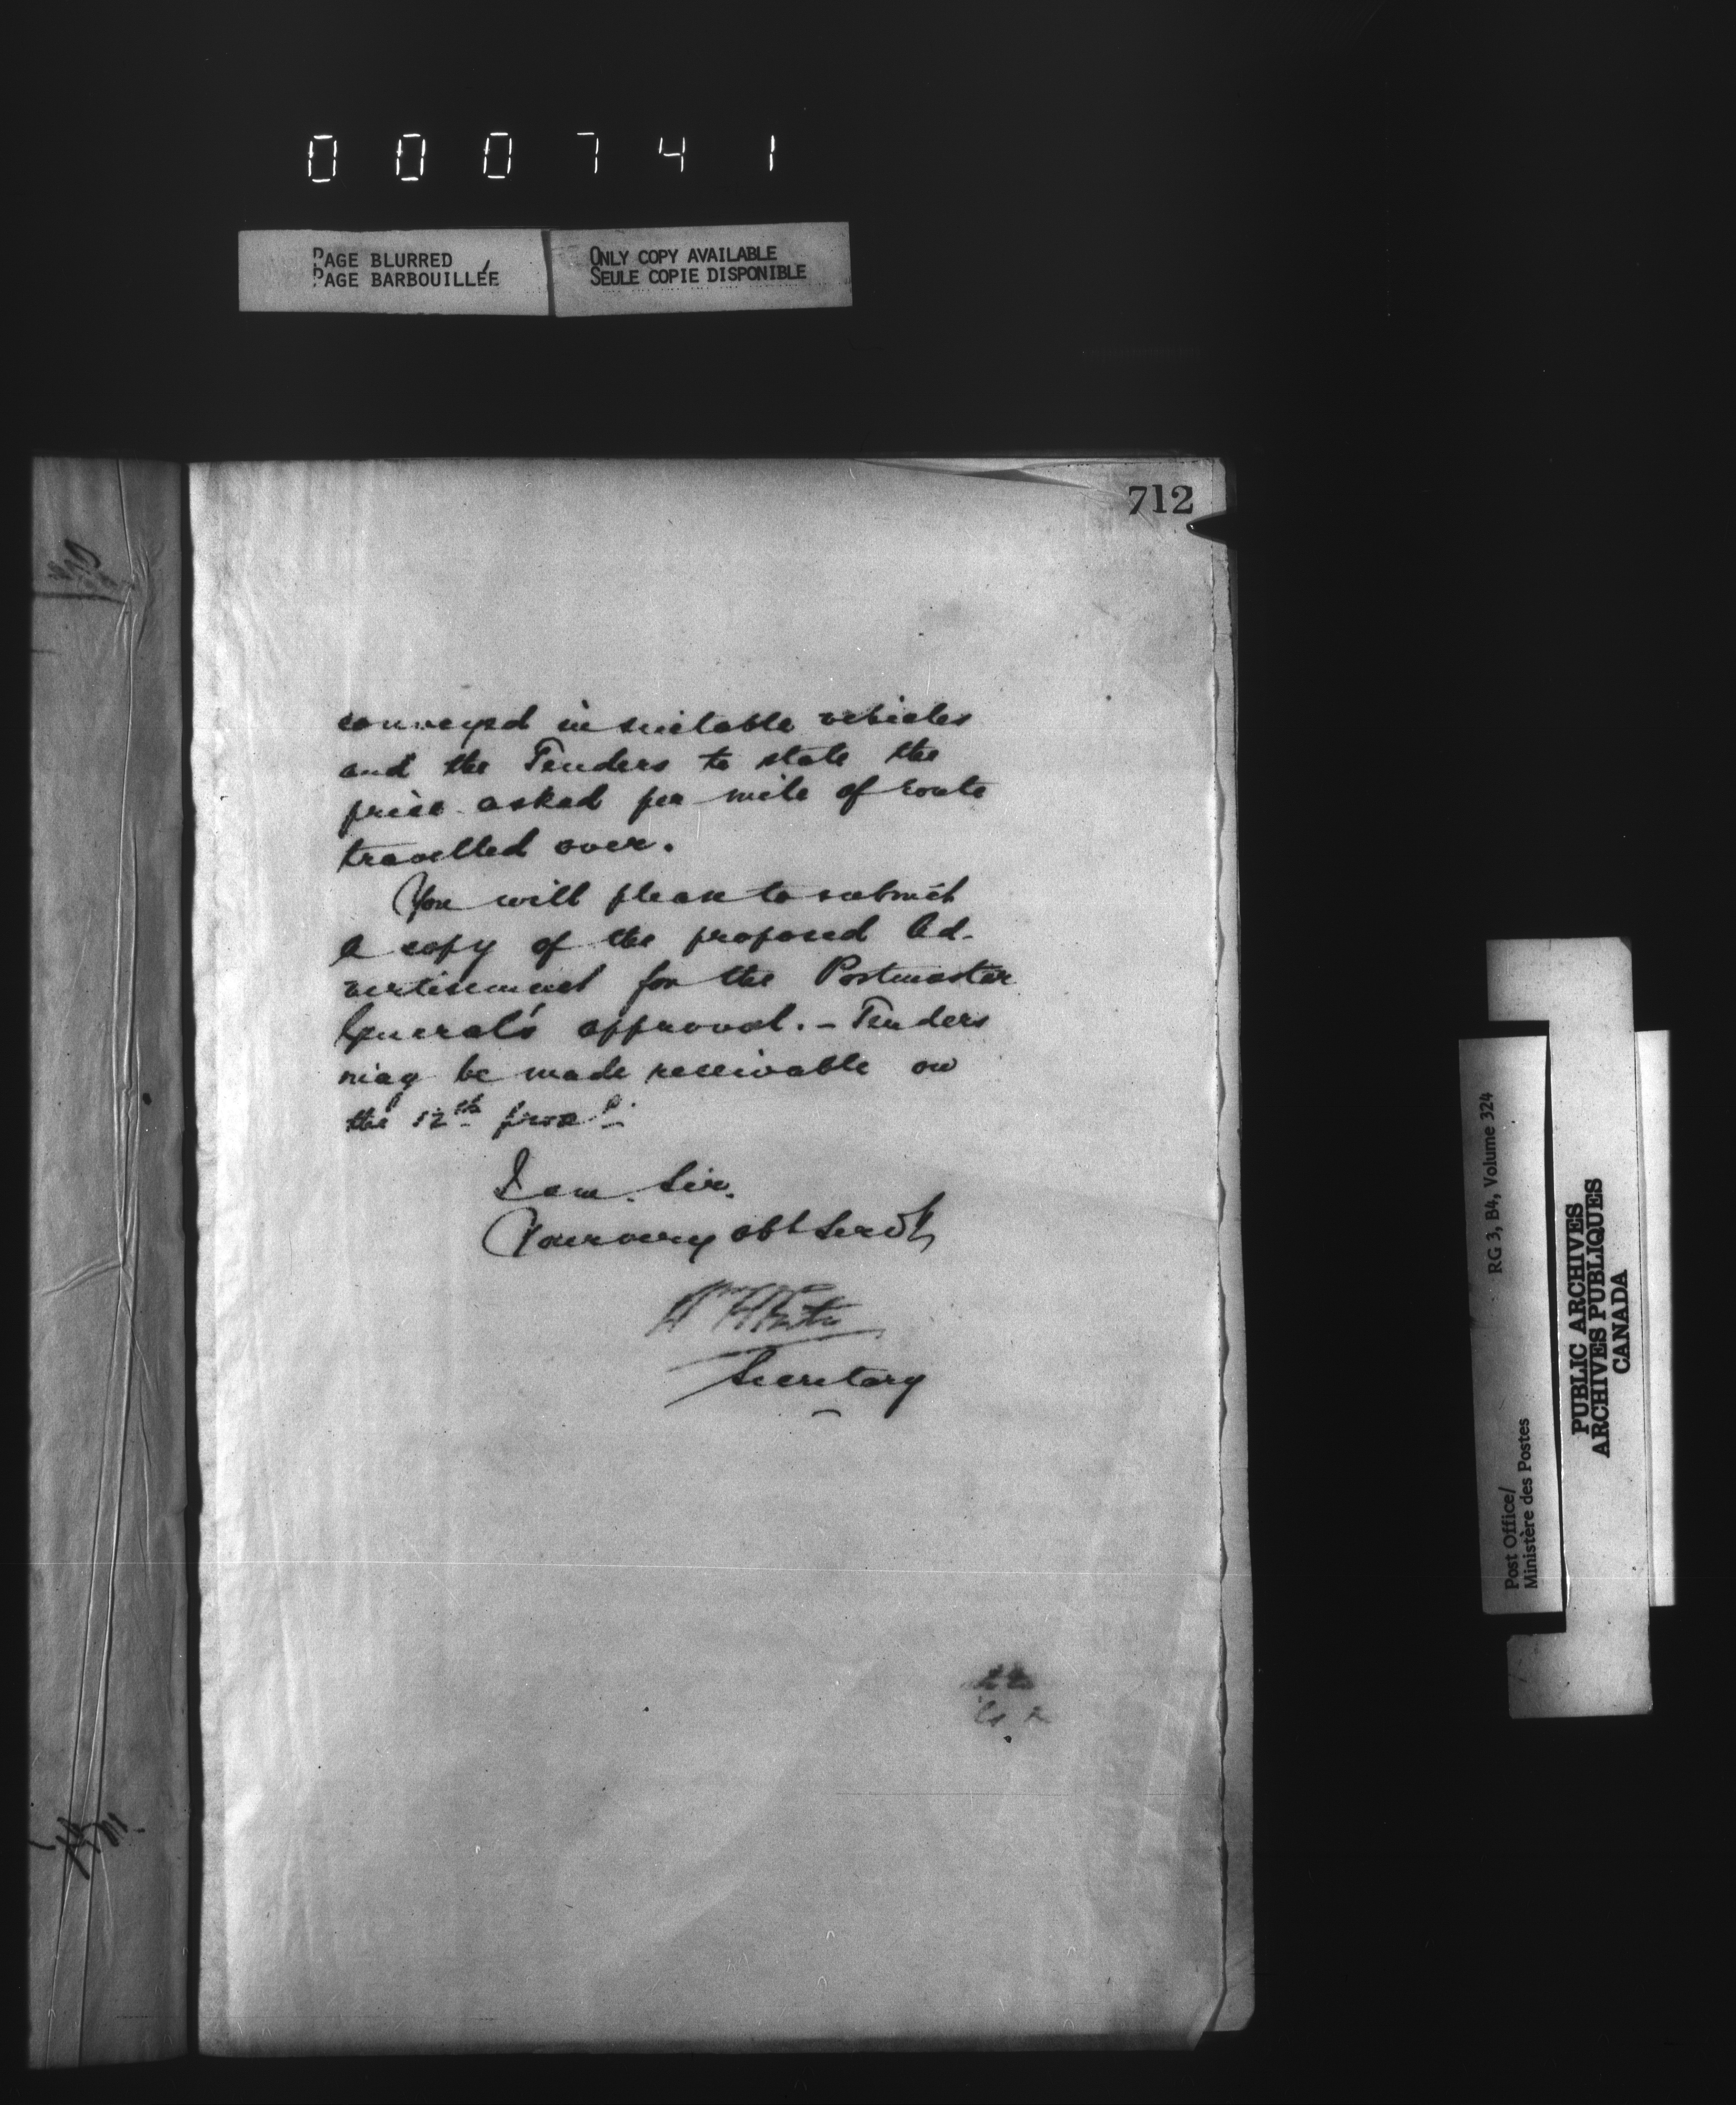 000741
PAGE BLURRED
PAGE BARBOUILLÉE
ONLY COPY AVAILABLE
SEULE COPIE DISPONIBLE
712
conveyed in suitable vehicles
and the Tenders to state the
price asked per mile of route
travelled over.
You will please to submit
a copy of the proposed Ad-
vertisement for the Postmaster
General's approval. - Tenders
may be made receivable on
the 12th prox.
I am. Sir.
Your very obt Servt
Secretary
RG 3, B4, Volume 324
Post Office/
Ministère des Postes
PUBLIC ARCHIVES
ARCHIVES PUBLIQUES
CANADA